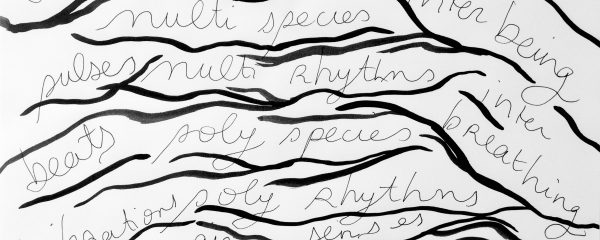 multi species
inter being
pulses multi rhythms
inter
breathing
beats poly species
vibrations poly rhythms
senses